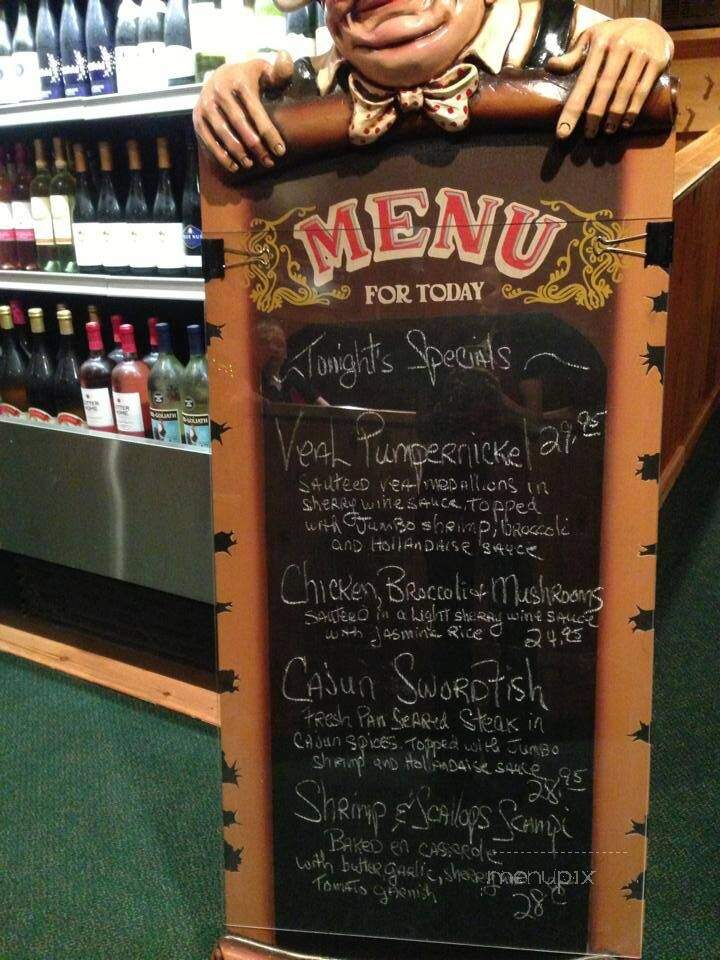 MENU
FOR TODAY
Tonight's Specials
Veal Pumpernickel 29.95
Sauteed veal medallions in
sherry wine sauce, topped
with Jumbo shrimp, broccoli
and Hollandaise sauce
Chicken, Broccoli & Mushrooms
Sauteed in a light sherry wine sauce
with Jasmine Rice 24.95
Cajun Swordfish
Fresh Pan Seared Steak in
Cajun spices. Topped with Jumbo
shrimp and Hollandaise sauce
28.95
Shrimp & Scallops Scampi
Baked en casserole
with butter, garlic, sherry
Tomato garnish
28
menupix